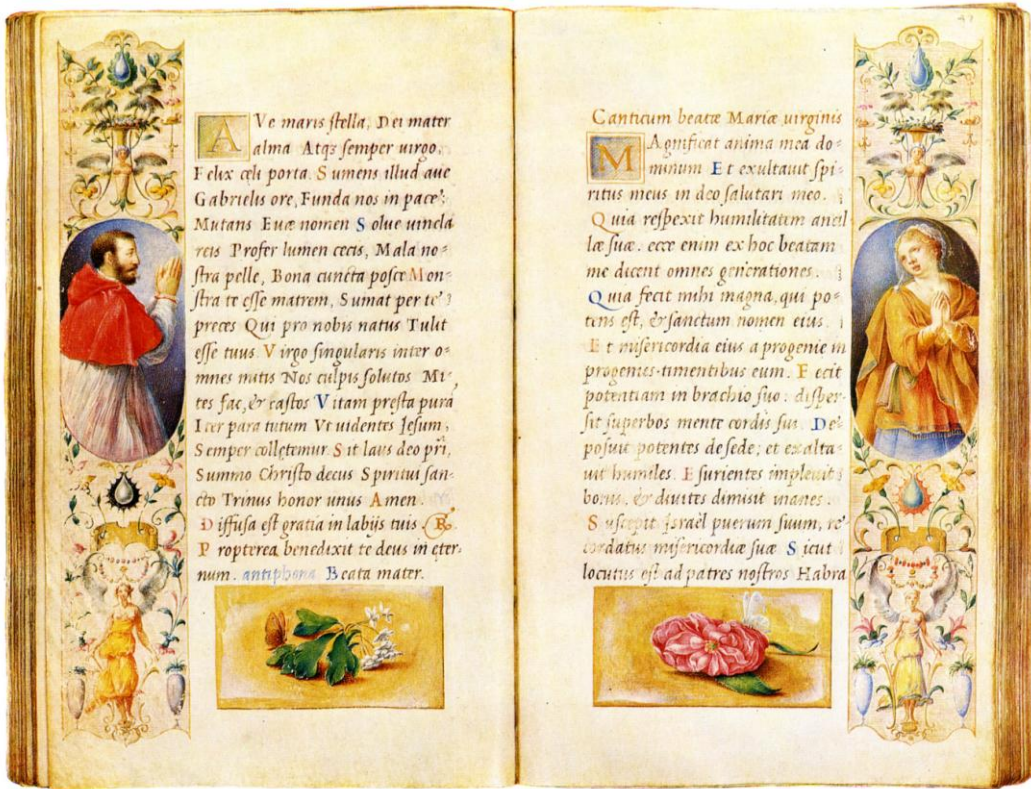 AVe maris stella, Dei mater
alma Atqз semper uirgo,
Felix celi porta. Sumens illud aue
Gabrielis ore, Funda nos in pace,
Mutans Euæ nomen Solue uincla
reis Profer lumen cecis, Mala no=
stra pelle, Bona cuncta posce Mon=
stra te esse matrem, Sumat per te
preces Qui pro nobis natus Tulit
esse tuus Virgo singularis inter o=
mnes mitis Nos culpis solutos Mi
tes fac, & castos Vitam presta purā
Iter para tutum Vt uidentes Iesum,
Semper colletemur Sit laus deo pr̄i,
Summo Christo decus Spiritui san-
cto Trinus honor unus Amen.
Diffusa est gratia in labijs tuis. R.
Propterea benedixit te deus in eter-
num. antiphona Beata mater.
47
Canticum beatæ Mariæ uirginis
MAgnificat anima mea do=
minum Et exultauit spi=
ritus meus in deo salutari meo.
Quia respexit humilitatem ancil
læ suæ. ecce enim ex hoc beatam
me dicent omnes generationes.
Quia fecit mihi magna, qui po=
tens est, & sanctum nomen eius.
Et misericordia eius a progenie in
progenies timentibus eum. Fecit
potentiam in brachio suo: disper-
sit superbos mente cordis sui. De
posuit potentes de sede; et exalta=
uit humiles. Esurientes impleuit
bonis. & diuites dimisit inanes.
Suscepit Israel puerum suum, re=
cordatus misericordiæ suæ Sicut
locutus est ad patres nostros Habra